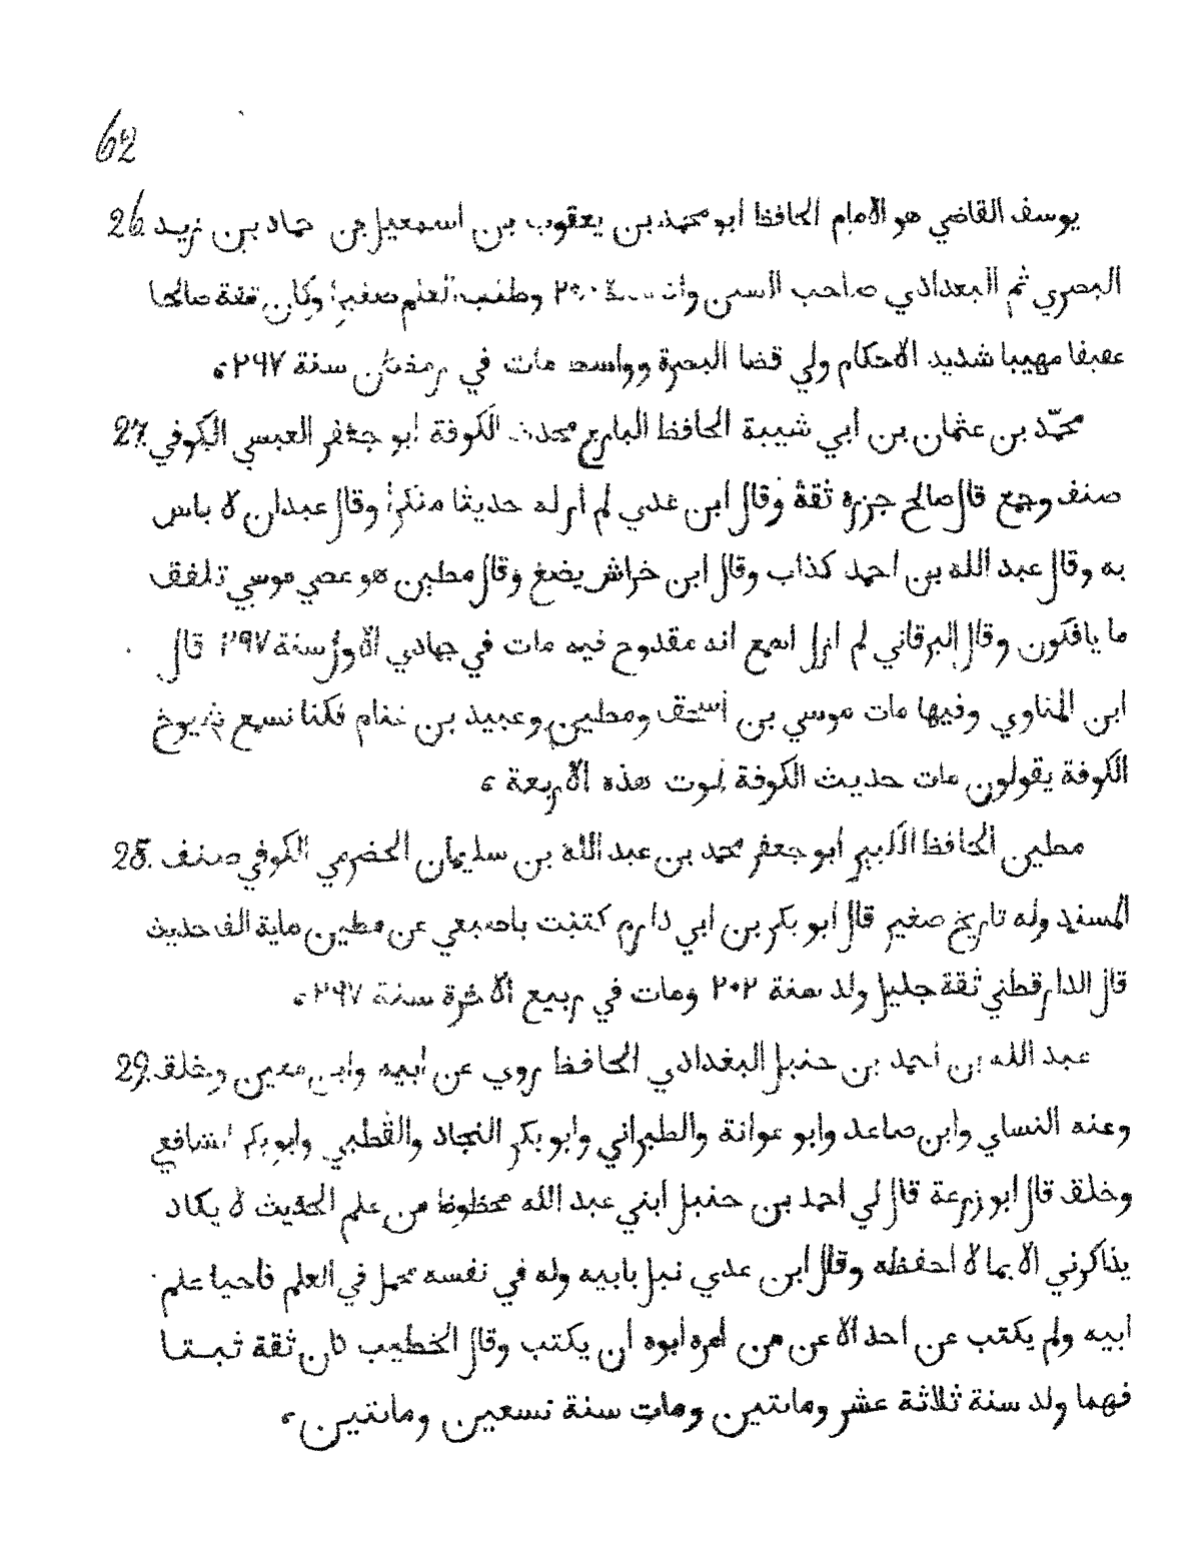 62
26. يوسف القاضي هو الامام الحافظ ابو محمد بن يعقوب بن اسمعيل بن حماد بن زيد
البصري ثم البغدادي صاحب السنن وطلب العلم صغيرا وكان ثقة صالحا
عفيفا مهيبا شديد الاحكام ولي قضا البصرة وواسط مات في رمضان سنة ٢٩٧
27. محمّد بن عثمان بن ابي شيبة الحافظ البارع محدث الكوفة ابو جعفر العبسي الكوفي
صنف وجمع قال صالح جزرة ثقة وقال ابن عدي لم أر له حديثا منكرا وقال عبدان لا باس
به وقال عبد الله بن احمد كذاب وقال ابن خراش يضع وقال مطين هو عصي موسي تلفق
ما يافكون وقال البرقاني لم ازل اسمع انه مقدوح فيه مات في جهادي الاول سنة ٢٩٧ قال
ابن المناوي وفيها مات موسي بن اسحق ومطين وعبيد بن غنام فكنا نسمع شيوخ
الكوفة يقولون مات حديث الكوفة بموت هذه الاربعة
28. مطين الحافظ الكبير ابو جعفر محمد بن عبد الله بن سليمان الحضرمي الكوفي صنف
المسند وله تاريخ صغير قال ابو بكر بن ابي دارم كتبت باصبعي عن مطين ماية الف حديث
قال الدارقطني ثقة جليل ولد سنة ٢٠٢ ومات في ربيع الاخرة سنة ٢٩٧
29. عبد الله بن احمد بن حنبل البغدادي الحافظ روي عن ابيه وابن معين وخلق
وعنه النساي وابن صاعد وابو عوانة والطبراني وابو بكر النجاد والقطبي وابو بكر الشافعي
وخلق قال ابو زرعة قال لي احمد بن حنبل ابني عبد الله محظوظ من علم الحديث لا يكاد
يذاكرني الا بما لا احفظه وقال ابن عدي نبل بابيه وله في نفسه محل في العلم فاحيا علم
ابيه ولم يكتب عن احد الا عن من امره ابوه ان يكتب وقال الخطيب كان ثقة ثبتا
فهما ولد سنة ثلاثة عشر ومائتين ومات سنة تسعين ومائتين